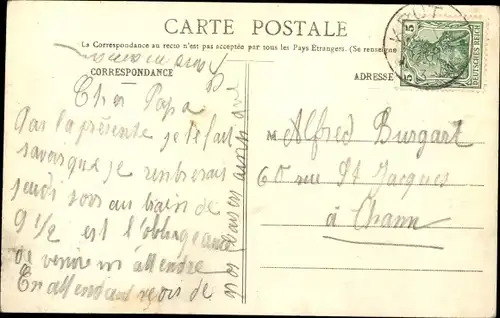 CARTE POSTALE
La Correspondance au recto n'est pas acceptée par tous les Pays Etrangers. (Se renseigner
CORRESPONDANCE
ADRESSE
5 5
DEUTSCHES REICH
Cher Papa
Par la présente je te fait
savoir que je rentrerai
jeudi soir au train de
9 1/2 est l'obligeance
de venire m attendre
En attendant recois de
M Alfred Burgart
60 rue St Jacques
à Thann